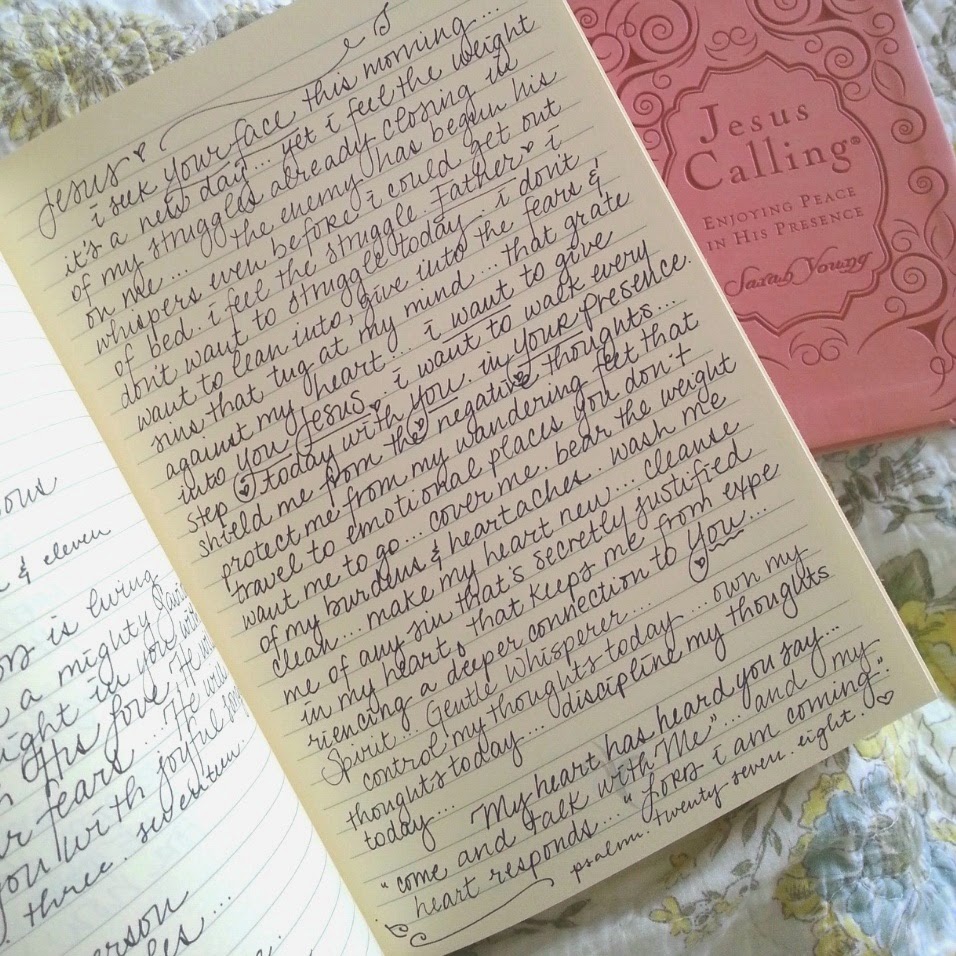 ous
& eleven
is living
a mighty Savi
ght in you with
His love. He will
r fears.... He will
you with joyful song
three. seventeen.
erson
es ...
Jesus
i seek your face this morning...
it's a new day... yet i feel the weight
of my struggles already closing in
on me... the enemy has begun his
whispers even before i could get out
of bed. i feel the struggle. Father i
don't want to struggle today... i don't
want to lean into, give into the fears &
sins that tug at my mind... that grate
against my heart... i want to give
into you Jesus... i want to walk every
step today with you. in your presence.
shield me from the negative thoughts...
protect me from my wandering feet that
travel to emotional places you don't
want me to go... cover me. bear the weight
of my burdens & heartaches.. wash me
clean... make my heart new... cleanse
me of any sin that's secretly justified
in my heart, that keeps me from expe
riencing a deeper connection to You...
Spirit... Gentle Whisperer....
control my thoughts today... own my
thoughts today... discipline my thoughts
today...
"My heart has heard you say...
"come and talk with Me"... and my
heart responds... "LORD i am coming".
psalm. twenty seven. eight.
Jesus
Calling®
Enjoying Peace
in His Presence
Sarah Young